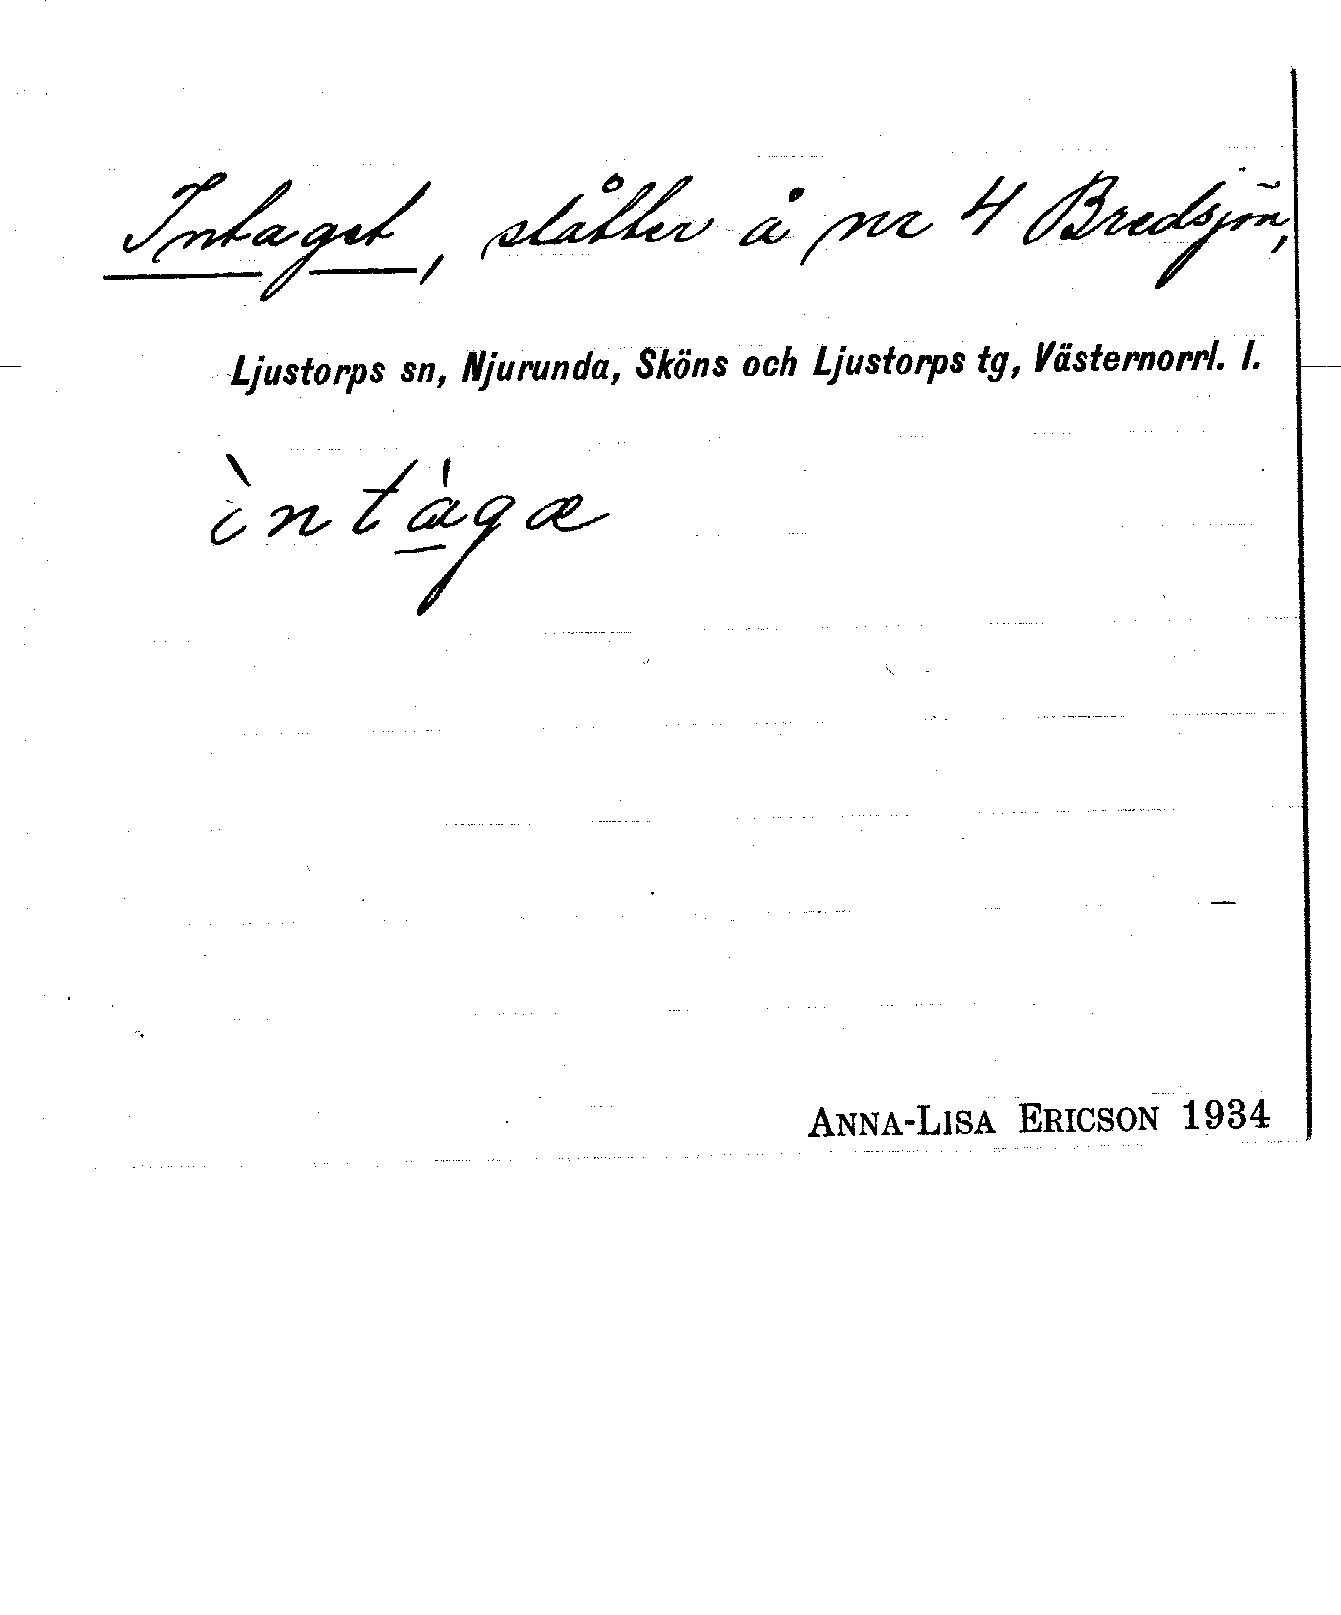 Intaget, slåtter å nr 4 Bredsjön,
Ljustorps sn, Njurunda, Sköns och Ljustorps tg, Västernorrl. l.
ìntàgæ
ANNA-LISA ERICSON 1934